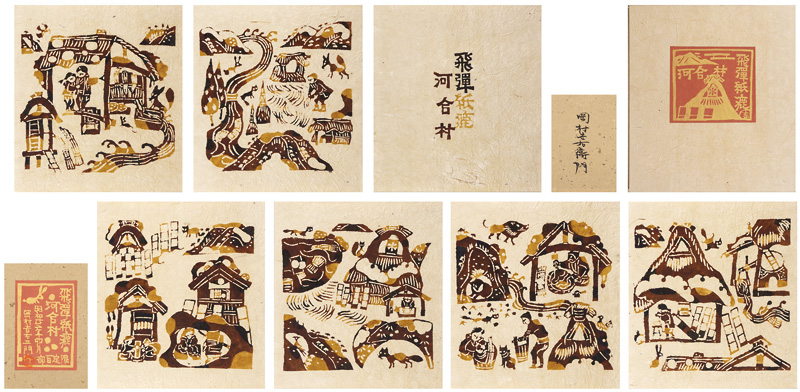 飛彈紙漉
河合村
岡村吉右衛門
飛彈紙漉
河合村
飛彈紙漉
河合村